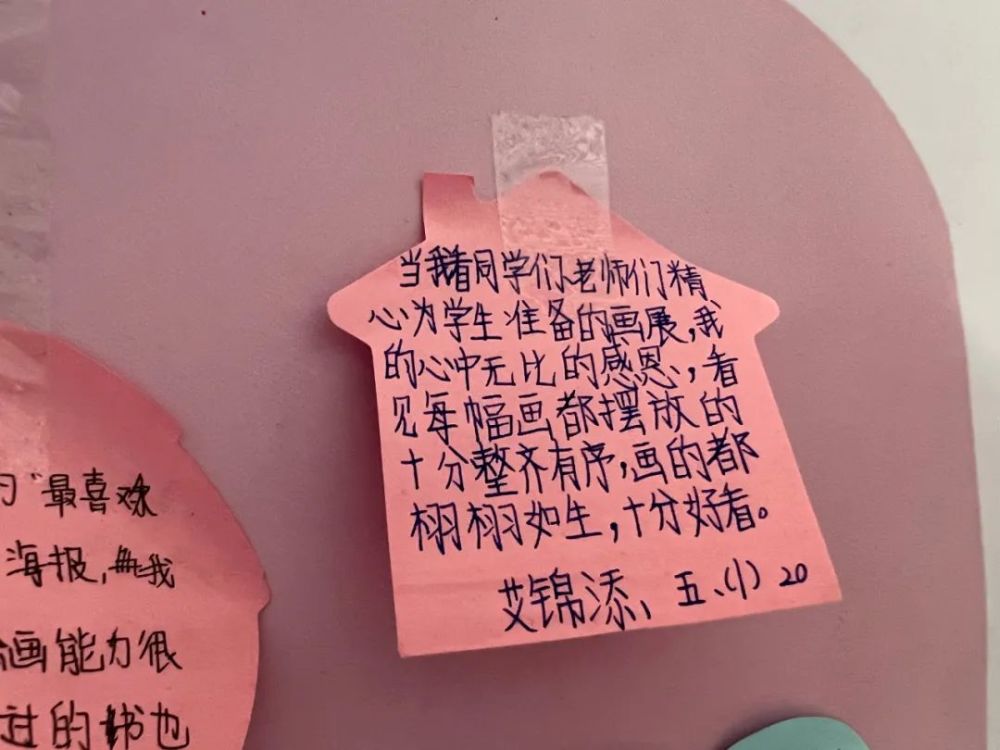 当我看同学们、老师们精
心为学生准备的画展,我
的心中无比的感恩,看
见每幅画都摆放的
十分整齐有序,画的都
栩栩如生,十分好看。
艾锦添、五、(小) 20
"最喜欢
海报,我
画能力很
过的书也